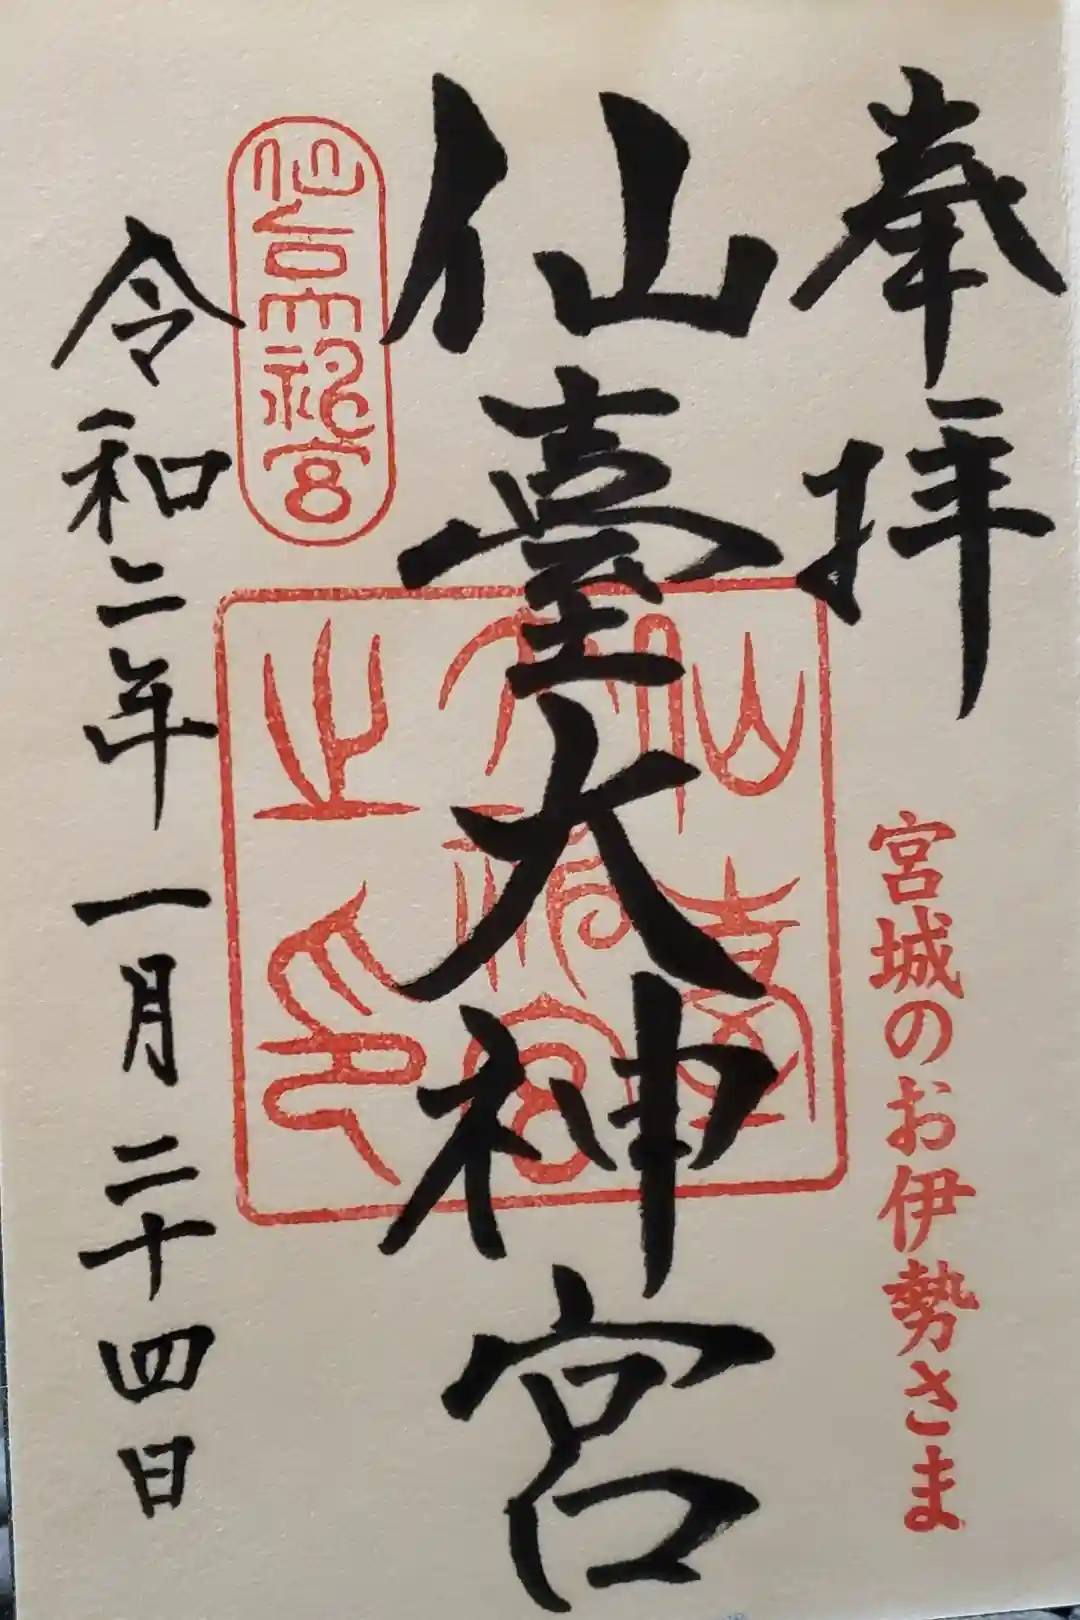 奉拝
宮城のお伊勢さま
仙臺大神宮
仙臺
大神宮
之印
仙台神宮
令和二年一月二十四日